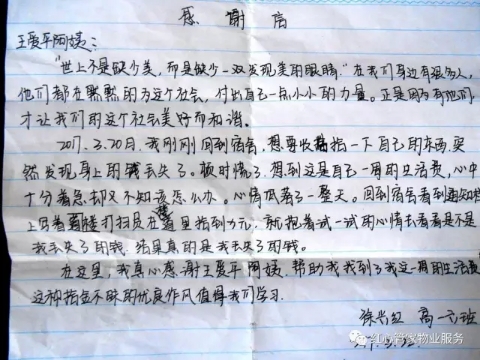 感谢信
王爱平阿姨：
"世上不是缺少美，而是缺少一双发现美的眼睛."在我们身边有很多人，
他们都在默默的为这个社会，付出自己一点小小的力量。正是因为有他们，
才让我们的这个社会美好而和谐。
2017.3.20日，我刚刚回到宿舍，想要收拾一下自己的东西，突
然发现身上的钱丢失了。顿时慌了，想到这是自己一周的生活费，心中
十分着急却又不知该怎么办。心情低落了一整天。回到宿舍看到通知栏
上写着 楼打扫员在 道里拾到 元，就抱着试一试的心情去看看是不是
我丢失了的钱，结果真的是我丢失了的钱。
在这里，我真心感谢王爱平阿姨，帮助我找到了我这一周的生活费
这种拾金不昧的优良作风值得我们学习.
徐 红 高一六班
红 管家物业服务